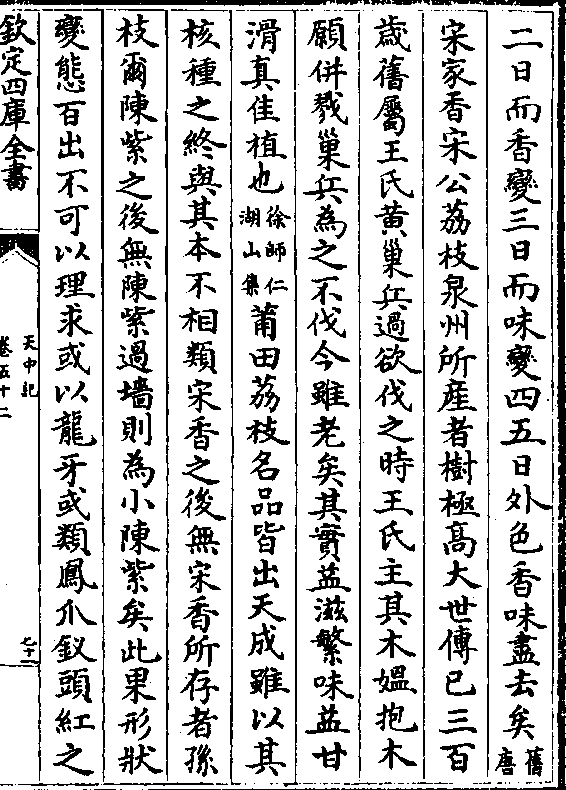 二日而香變三日而味變四五日外色香味盡去矣舊唐
宋家香宋公荔枝泉州所産者樹極髙大世傳已三百
歲舊屬王氏黄巢兵過欲伐之時王氏主其木媼抱木
願併戮巢兵為之不伐今雖老矣其實益滋繁味益甘
滑真佳植也徐師仁湖山集莆田荔枝名品皆出天成雖以其
核種之終與其本不相類宋香之後無宋香所存者孫
枝爾陳紫之後無陳紫過墻則為小陳紫矣此果形狀
變態百出不可以理求或以龍牙或類鳳爪釵頭紅之
欽定四庫全書
天中記
卷五十二
七十二